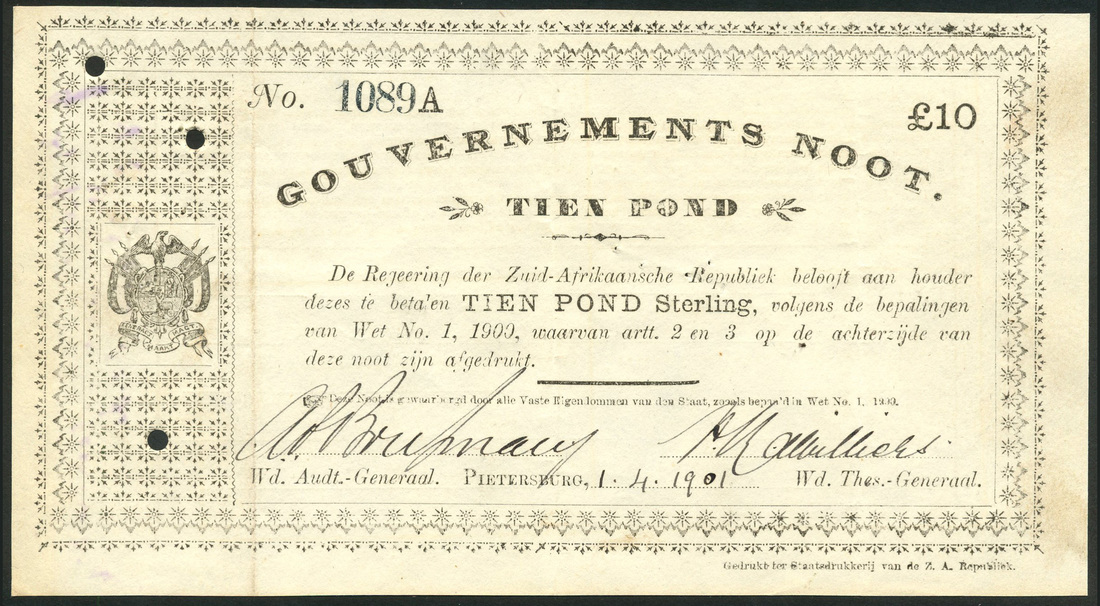 No. 1089A
£10
GOUVERNEMENTS NOOT.
TIEN POND
De Regeering der Zuid-Afrikaansche Republiek belooft aan houder
dezes te beta'en TIEN POND Sterling, volgens de bepalingen
van Wet No. 1, 1900, waarvan artt. 2 en 3 op de achterzijde van
deze noot zijn afgedrukt.
Deze Noot is gewaarborgd door alle Vaste Eigendommen van den Staat, zooals bepaa'd in Wet No. 1, 1900.
Wd. Audt.-Generaal. PIETERSBURG, 1. 4. 1901 Wd. Thes.-Generaal.
Gedrukt ter Staatsdrukkerij van de Z. A. Republiek.